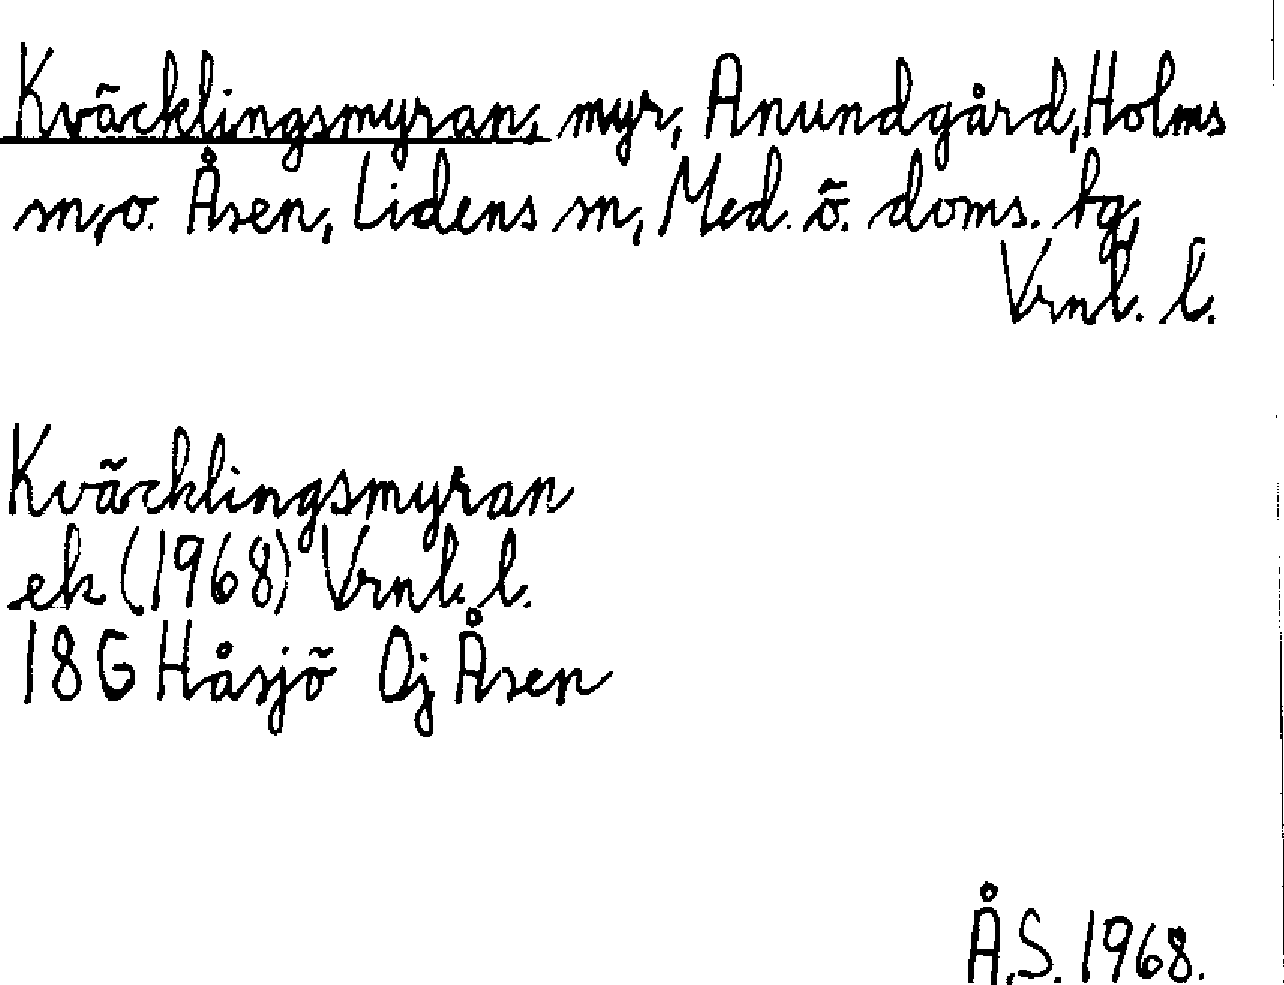 Kväcklingsmyran, myr, Anundgård, Holms
sn, o. Åsen, Lidens sn, Med. ö. doms. tg,
Vrnl. l.
Kväcklingsmyran
ek (1968) Vrnl. l.
18G Håsjö Oj Åsen
Å.S. 1968.